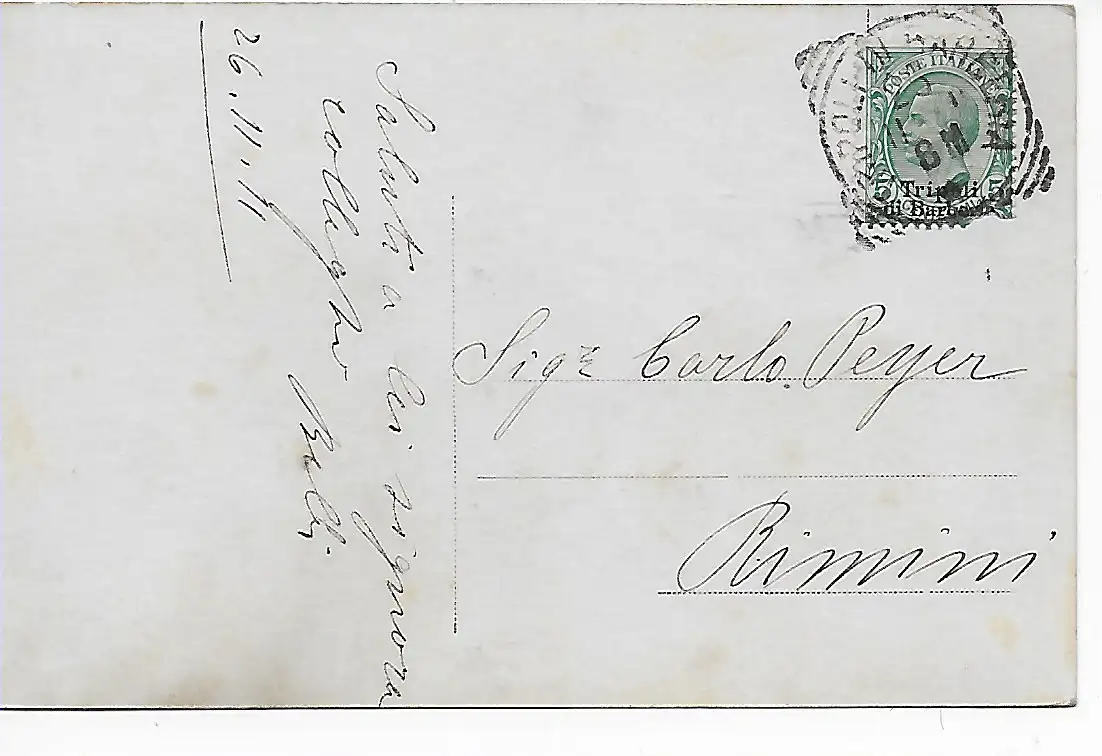 26.11.11
Saluti a lei signora
colleghi
Balbi
POSTE ITALIANE
5 5
Tripoli
di Barberia
Sigr Carlo Peyer
Rimini